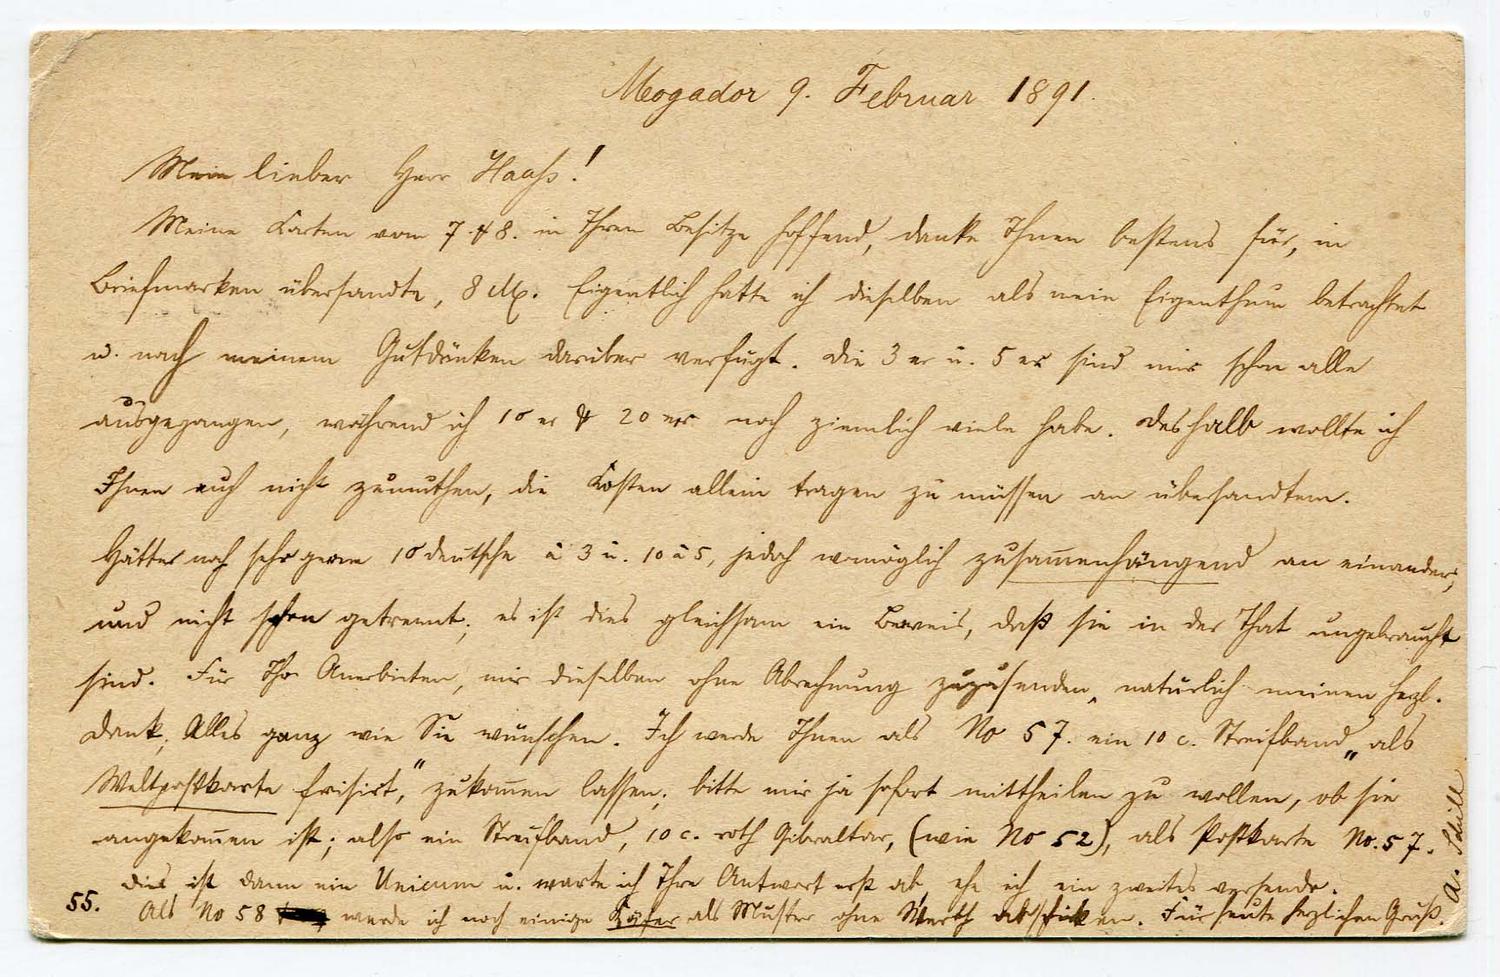 Mogador 9. Februar 1891.
Mein lieber Herr Haass!
Meine Karten vom 7. & 8. in Ihren Besitze hoffend, danke Ihnen bestens für, in
Briefmarken übersandte, 8 M. Eigentlich hatte ich dieselben als mein Eigenthum betrachtet
u. nach meinem Gutdünken darüber verfügt. Die 3 er u. 5 er sind mir schon alle
ausgegangen, während ich 10 er & 20 er noch ziemlich viele habe. Deshalb wollte ich
Ihnen auch nicht zumuthen, die Kosten allein tragen zu müssen an übersandtem.
Hätte noch sehr gerne 10 deutsche à 3 u. 10 à 5, jedoch womöglich zusam̅enhängend an einander,
und nicht schon getrennt; es ist dies gleichsam ein Beweis, daß sie in der That ungebraucht
sind. Für Ihr Anerbieten, mir dieselben ohne Abrechnung zuzusenden, natürlich meinen herzl.
Dank; Alles ganz wie Sie wünschen. Ich werde Ihnen als No 57. ein 10 c. Streifband „als
Weltpostkarte frisirt," zukom̅en lassen; bitte mir ja sofort mittheilen zu wollen, ob sie
angekom̅en ist; also ein Streifband, 10 c. roth Gibraltar, (wie No 52), als Postkarte No. 57.
dies ist dann ein Unicum u. warte ich Ihre Antwort erst ab, ehe ich ein zweites versende.
55. Als No 58 werde ich noch einige Käfer als Muster ohne Werth abschicken. Für heute herzlichen Gruß.
A. Schill